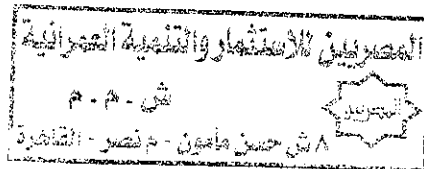 المصريين للاستثمار والتنمية العمرانية
ش . م . م
٨ ش حسن مأمون - م نصر - القاهرة